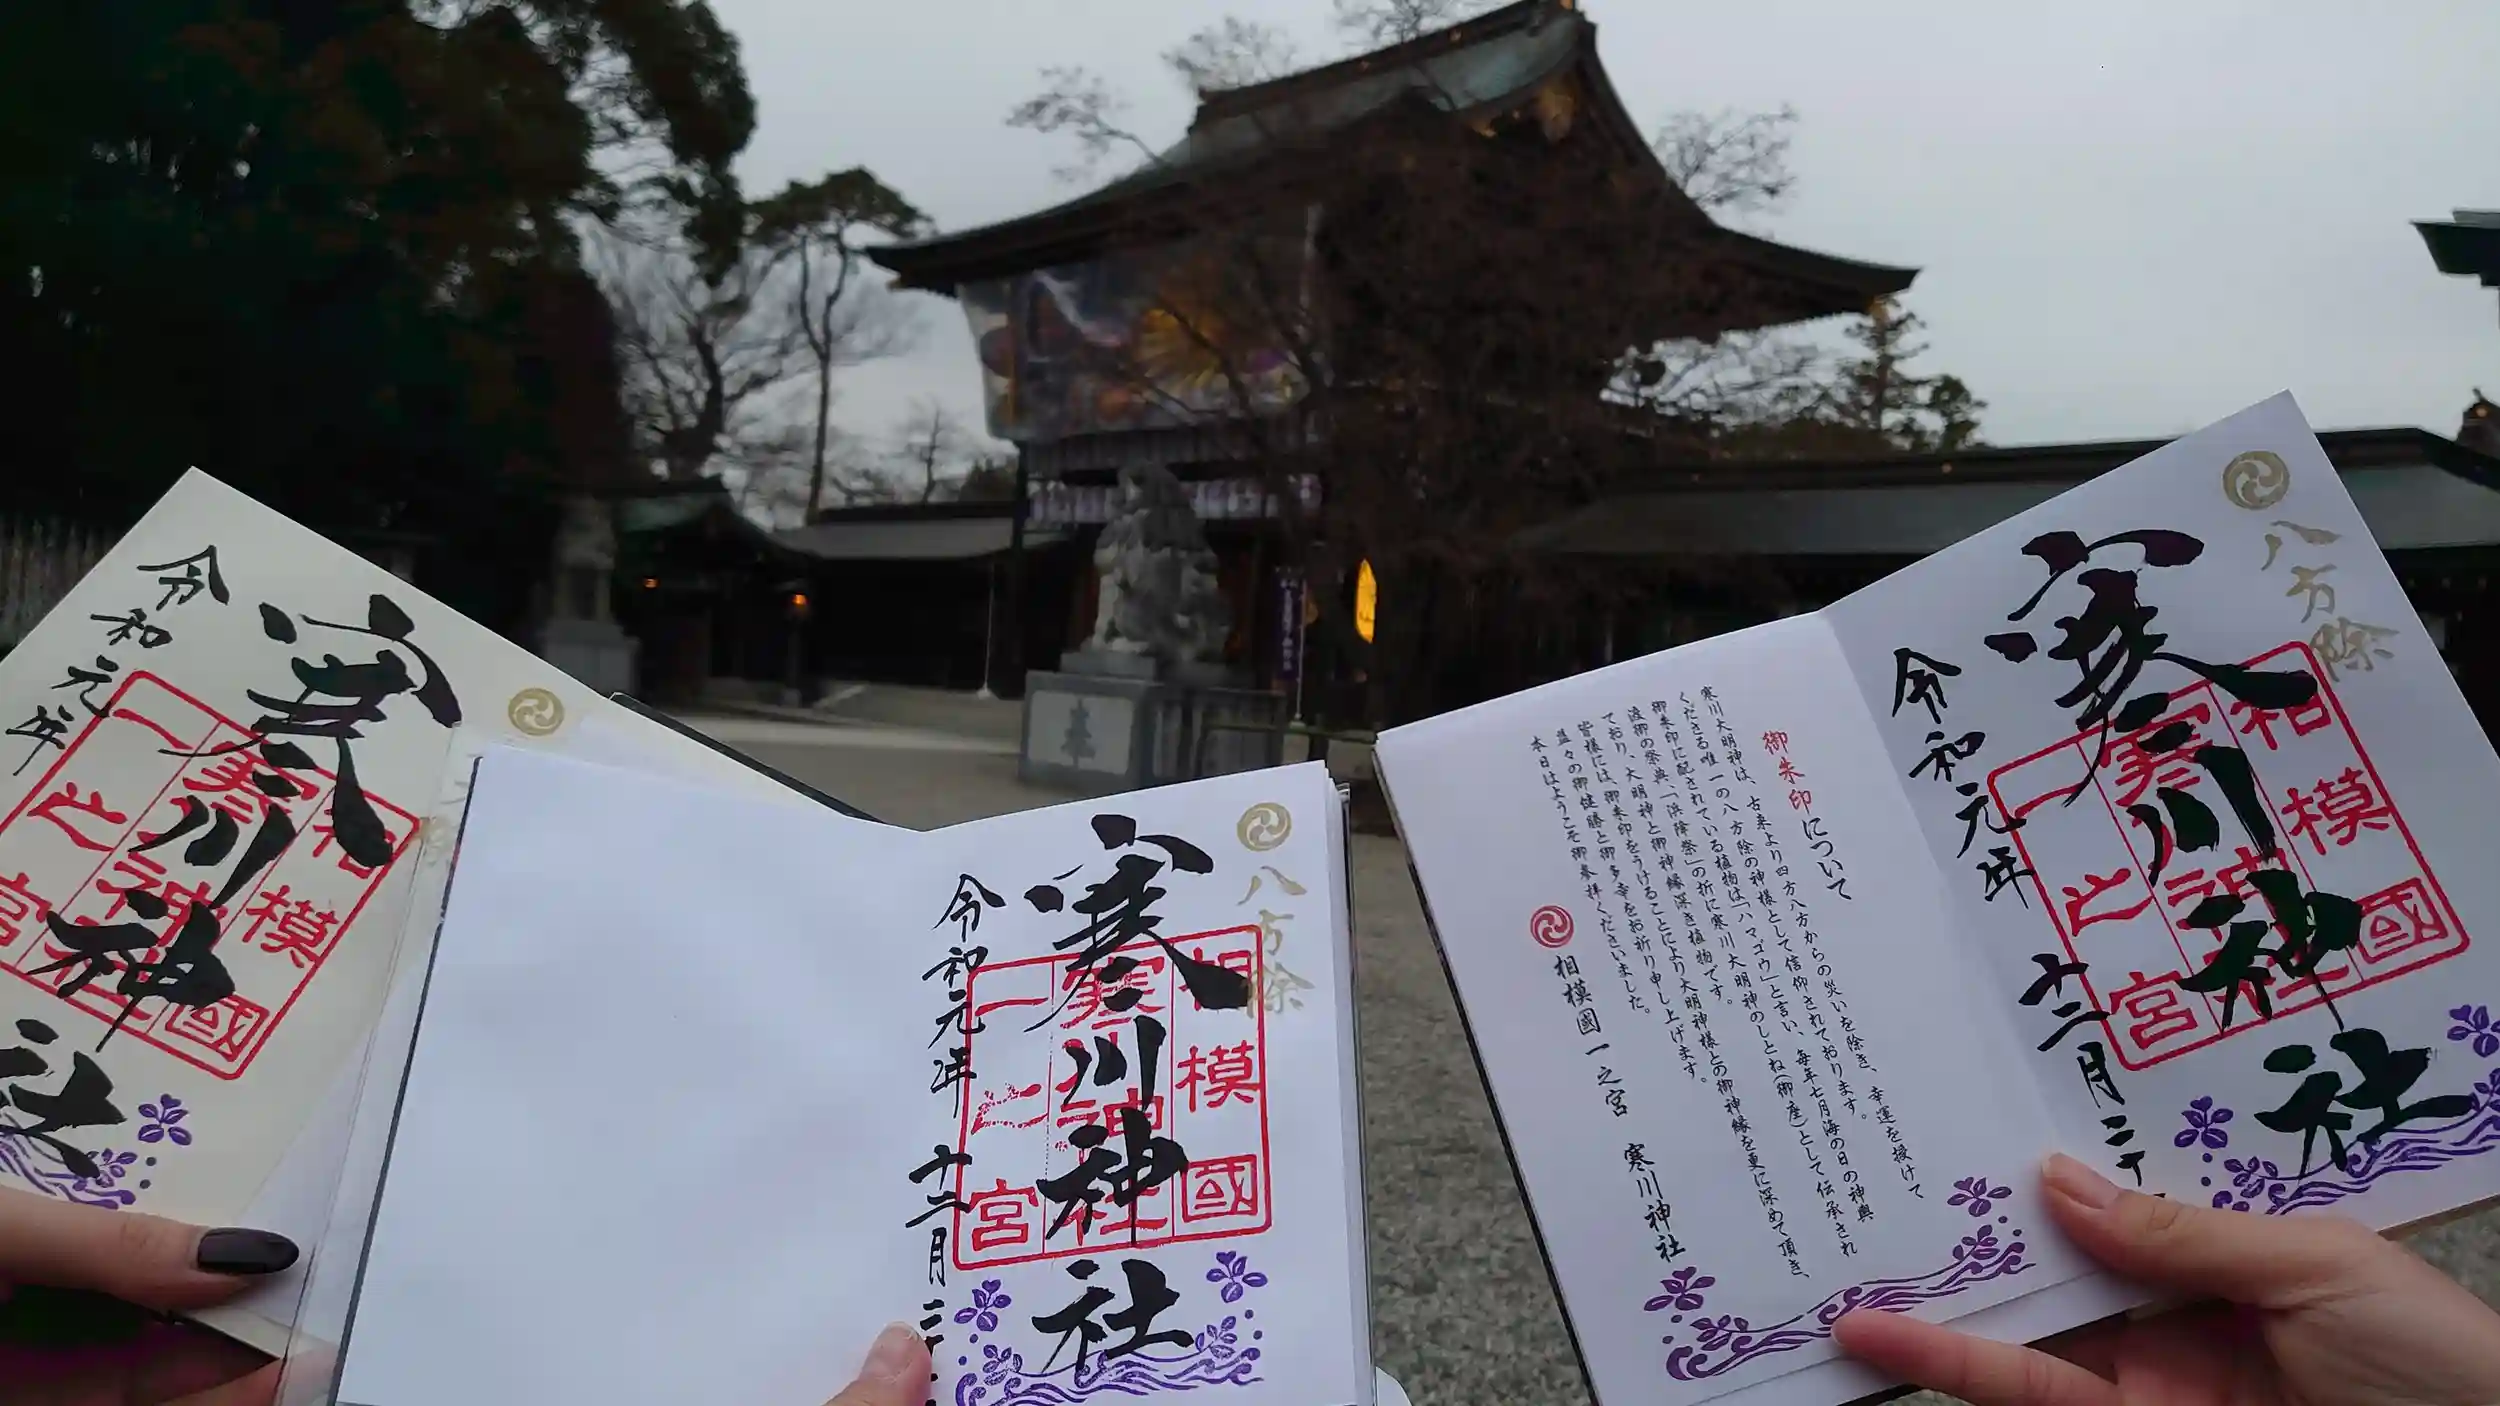 令和元年
寒川神社
相模國
寒川神社
一之宮
八方除
寒川神社
相模國
寒川神社
一之宮
令和元年 十二月二十
御朱印について
寒川大明神は、古来より四方八方からの災いを除き、幸運を授けて
くださる唯一の八方除の神様として信仰されております。
御朱印に配されている植物は「ハマゴウ」と言い、毎年七月海の日の神輿
渡御の祭典、「浜降祭」の折に寒川大明神のしとね(御座)として伝承され
ており、大明神と御神縁深き植物です。
皆様には、御朱印をうけることにより大明神様との御神縁を更に深めて頂き、
益々の御健勝と御多幸をお祈り申し上げます。
本日はようこそ御参拝くださいました。
相模國一之宮 寒川神社
八方除
寒川神社
相模國
寒川神社
一之宮
令和元年 十二月二十